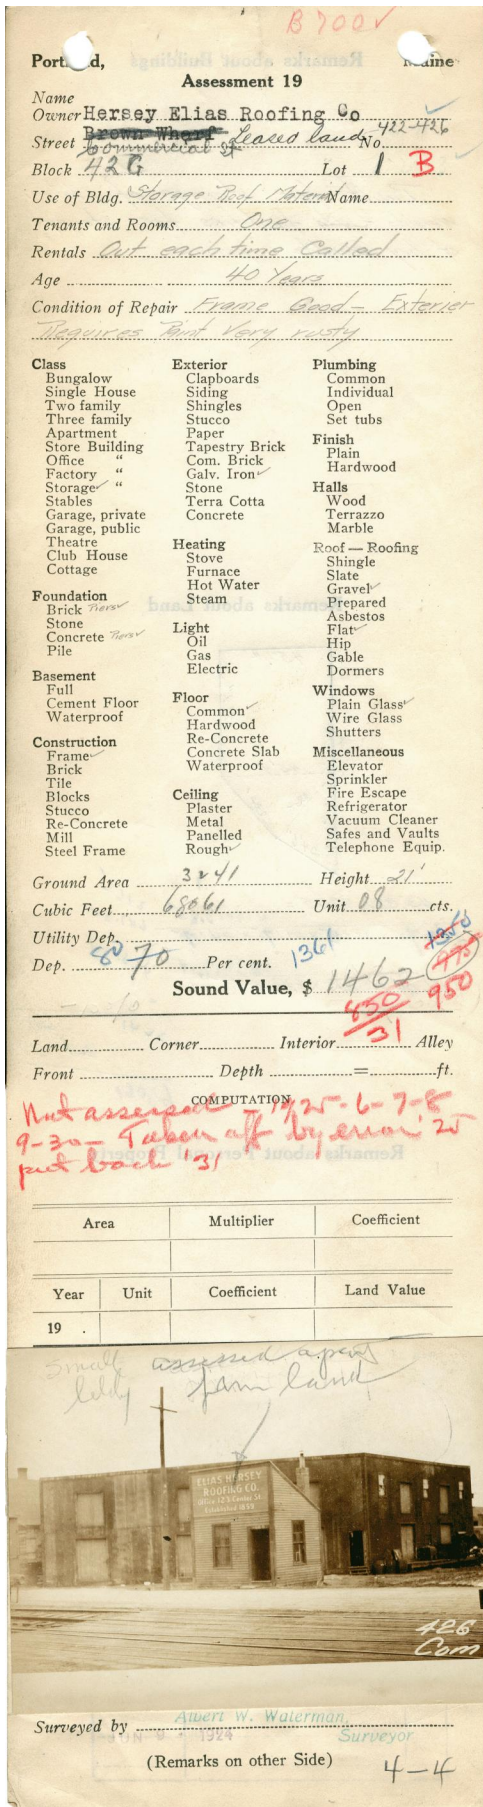 B 700 ✓
Portland, Maine
Assessment 19
Name
Owner Hersey Elias Roofing Co
Street Brown Wharf Leased land No. 422-426
Commercial St
Block 42G Lot 1 B
Use of Bldg. Storage Roof Material Name
Tenants and Rooms One
Rentals Out each time Called
Age 40 Years
Condition of Repair Frame Good - Exterier
Requires Paint Very rusty
Class
Bungalow
Single House
Two family
Three family
Apartment
Store Building
Office "
Factory "
Storage ✓ "
Stables
Garage, private
Garage, public
Theatre
Club House
Cottage
Foundation
Brick Piers ✓
Stone
Concrete Piers ✓
Pile
Basement
Full
Cement Floor
Waterproof
Construction
Frame ✓
Brick
Tile
Blocks
Stucco
Re-Concrete
Mill
Steel Frame
Exterior
Clapboards
Siding
Shingles
Stucco
Paper
Tapestry Brick
Com. Brick
Galv. Iron ✓
Stone
Terra Cotta
Concrete
Heating
Stove
Furnace
Hot Water
Steam
Light
Oil
Gas
Electric
Floor
Common ✓
Hardwood
Re-Concrete
Concrete Slab
Waterproof
Ceiling
Plaster
Metal
Panelled
Rough ✓
Plumbing
Common
Individual
Open
Set tubs
Finish
Plain
Hardwood
Halls
Wood
Terrazzo
Marble
Roof — Roofing
Shingle
Slate
Gravel ✓
Prepared
Asbestos
Flat ✓
Hip
Gable
Dormers
Windows
Plain Glass ✓
Wire Glass
Shutters
Miscellaneous
Elevator
Sprinkler
Fire Escape
Refrigerator
Vacuum Cleaner
Safes and Vaults
Telephone Equip.
Ground Area 3241 Height 21'
Cubic Feet 68061 Unit 08 cts.
Utility Dep. 1350
Dep. 80 70 Per cent. 1361 975
Sound Value, $ 1462 950
850
31
Land Corner Interior Alley
Front Depth = ft.
COMPUTATION
Not assessed - 1925-6-7-8
9-30- Taken off by error '25
put back '31
Area Multiplier Coefficient
Year Unit Coefficient Land Value
19 .
small assessed apart
bldg from land
ELIAS HERSEY
ROOFING CO.
Office 12½ Center St.
Established 1859
426
Com
Surveyed by Albert W. Waterman,
JUN 9 1924 Surveyor
(Remarks on other Side)
4-4